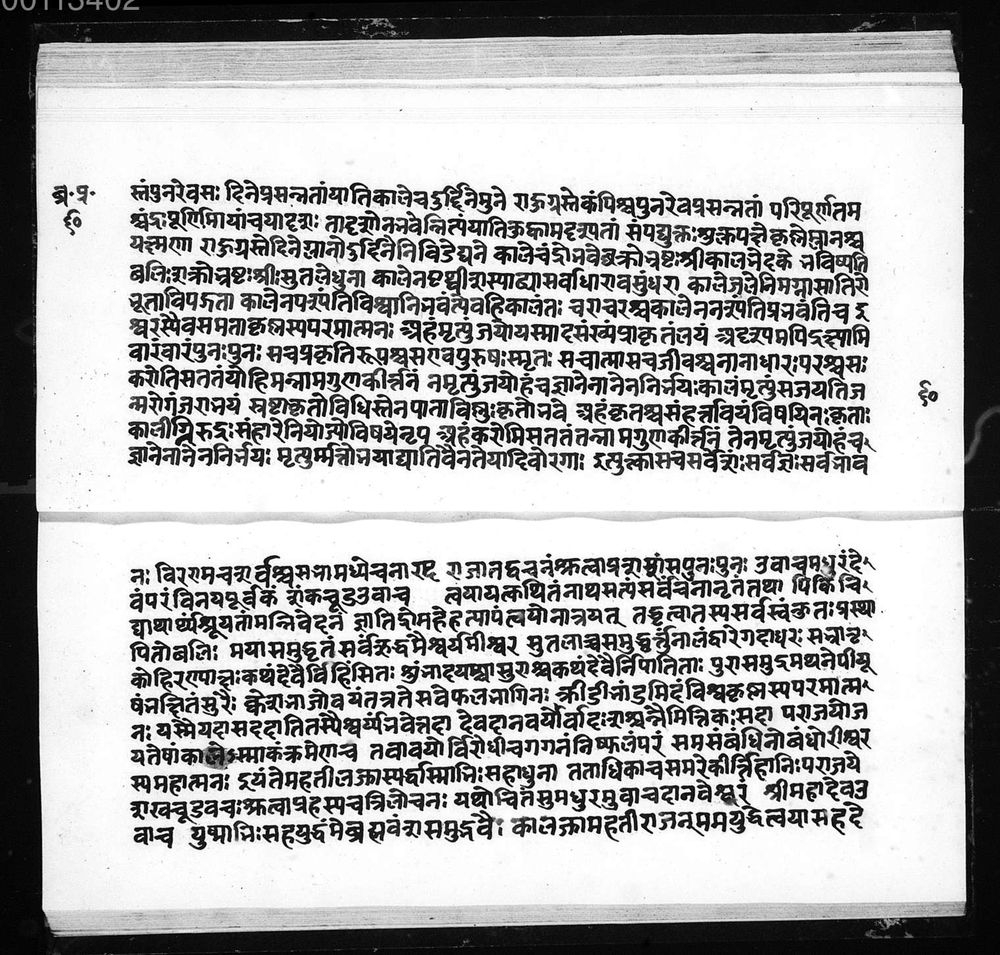 00113402
ब्र॰ प्र॰
६०
स्तंपुनरेवसः दिनेप्रसन्नतांयातिकालेचदुर्दिनेमुने राहुग्रस्तेकंपिश्चपुनरेवप्रसन्नतां परिपूर्णतम
श्चंद्रःपूर्णिमायांचयादृशः तादृशोनभवेन्नित्यंयाति संपद्युक्तःशुक्लपक्षेकृष्णेम्लानश्च
यक्ष्मणा राहुग्रस्तेदिनेम्लानोदुर्दिनेनिविडेघने कालेचंद्रोभवेच्छक्रोभ्रष्टःश्रीकालभेदके भविष्यति
बलिःशक्रोभ्रष्टःश्रीःसुतलेधुना कालेनपृथ्वीशस्याढ्यासर्वाधारावसुंधरा कालेजलेनिमग्नासातिरो
भूताविपद्गता कालेनपश्यंतिविश्वानिभवंत्येवहिकालतः चराचरश्चकालेननश्यंतिप्रभवंतिच ई
श्वरस्यैवसमताकृष्णस्यपरमात्मनः अहंमृत्युंजयोयस्मादसंख्यंप्राकृतंलयं अदृश्यमपिद्रक्ष्यामि
वारंवारंपुनःपुनः सचप्रकृतिरूपश्चसएवपुरुषःस्मृतः सचात्मासचजीवश्चनानाधारःपरश्चसः
करोतिसततंयोहिमन्नामगुणकीर्त्तनं नमृत्युंजयोहंचज्ञानेनानेननिर्भयःकालंमृत्युंसजयतिज
न्मरोगंजराभयं स्रष्टाकृतोविधिस्तेनपाताविष्णुःकृतोभवे अहंकृतश्चसंहर्त्तावयंविषयिनःकृताः
६०
कालाग्निरुद्रःसंहारेनियोज्योविषयेनृप अहंकरोमिसततंतन्नामगुणकीर्त्तनं तेनमृत्युंजयोहंच
ज्ञानेनानेननिर्भयः मृत्युर्मत्तोभयाद्यातिवैनतेयादिवोरगाः इत्युक्त्वासचसर्वेशःसर्वज्ञःसर्वभाव
नः विररामचशर्वश्चसभामध्येचनारद राजातद्वचनंश्रुत्वाप्रशशंसपुनःपुनः उवाचमधुरंदे
वंपरंविनयपूर्वकं शंखचूडउवाच त्वयायत्कथितंनाथसत्यंसर्वंचनानृतंतथा पिकिंचि
द्याथार्थ्यश्रूयतांमन्निवेदनं ज्ञातिद्रोमहैहत्पापंत्वयोनात्रयत् तद्गृहत्वातस्यसर्वस्वंकुतःप्रस्था
पितोबलिः मयासमुद्धृतंसर्वंरुद्धमैश्वर्यमीश्वर सुतलाच्चसमुद्धर्त्तुंनालंद्वारेगदाधरः सभ्रातृ
कोहिरण्याक्षःकथंदेवैर्विहिंसितः शुंभादयश्चासुराश्चकथंदेवैर्निपातिताः पुरासमुद्रमथनेपीयू
षंभक्षितंसुरैः क्लेशभाजोवयंतत्रतेसर्वेफलभागिनः क्रीडाभांडमिदंविश्वकृष्णस्यपरमात्म
नः यस्मैयदासददातितस्यैश्वर्यंभवेत्तदा देवदानवयोर्वादःशश्वन्नैमित्तिकःसदा पराजयोज
यतेषांकालेऽस्माकंक्रमेणच तवावयोर्विरोधीचगगनंनिष्फलंपरं समसंबंधिनोबंधोरीश्वर
स्यमहात्मनः इयंतेमहतीलज्जास्पर्द्धास्माभिःसहाधुना तताधिकाचसमरेकीर्त्तिहानिःपराजये
शंखचूडवचःश्रुत्वाप्रहस्यचत्रिलोचनः यथोचितंसुमधुरमुवाचदानवेश्वरं श्रीमहादेवउ
वाच युष्माभिःसहयुद्धंमेब्रह्मवंशसमुद्भवैः कालज्जामहतीराजन्ममयुद्धेत्वयासहदै